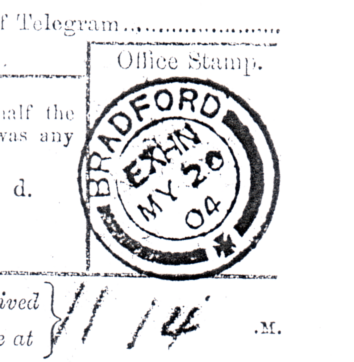 f Telegram
Office Stamp.
half the
was any
d.
BRADFORD
EXHN
MY 20
04
ived
e at
11 14 .M.